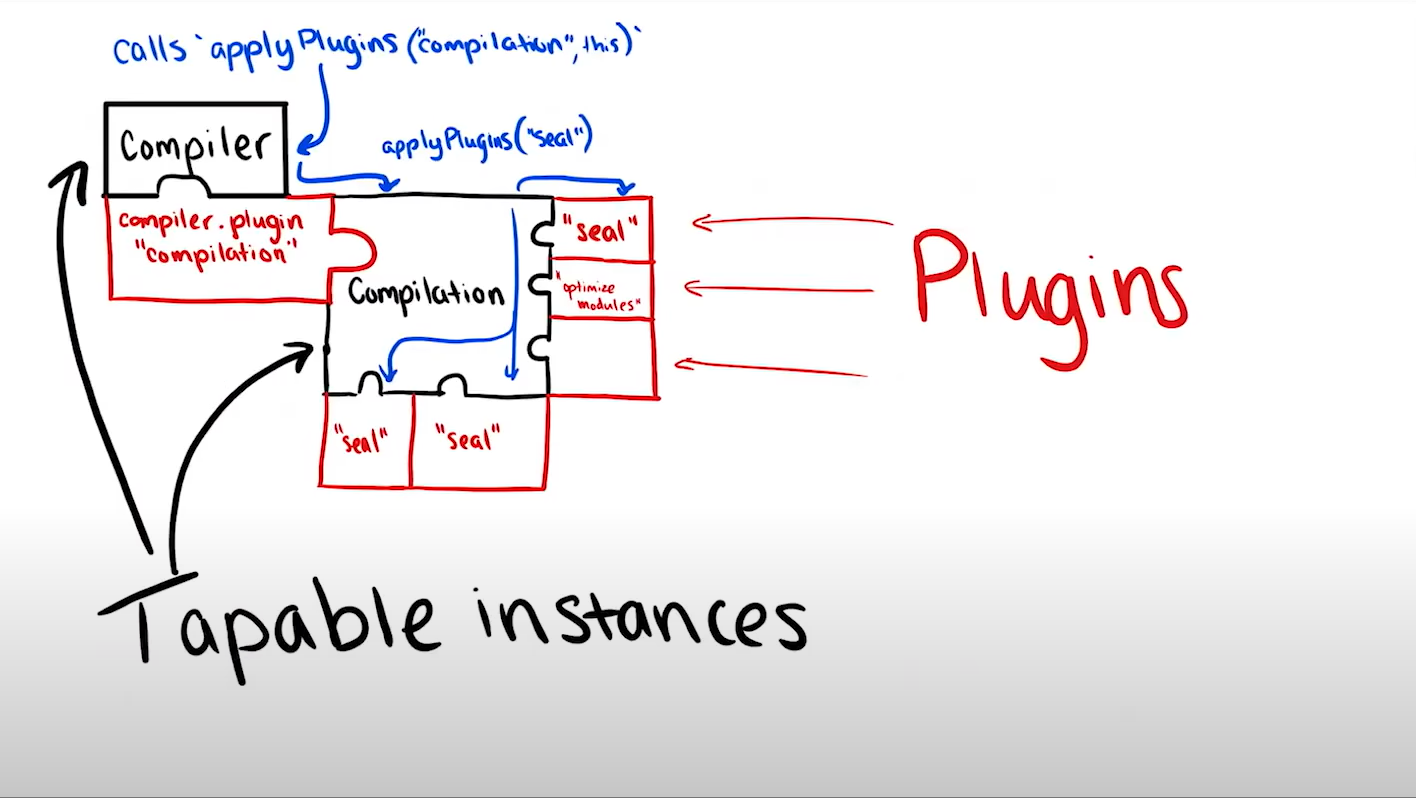 calls `applyPlugins("compilation", this)`
Compiler
applyPlugins("seal")
compiler.plugin
"compilation"
"seal"
Compilation
"optimize
modules"
Plugins
"seal"
"seal"
Tapable instances